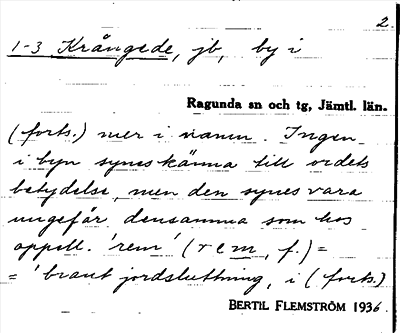 2.
1-3 Krångede, jb, by i
Ragunda sn och tg, Jämtl. län.
(forts.) mer i namn. Ingen
i byn synes känna till ordets
betydelse, men den synes vara
ungefär densamma som hos
appell. 'rem' (rem, f.) =
= 'brant jordsluttning, i (forts.)
BERTIL FLEMSTRÖM 1936.